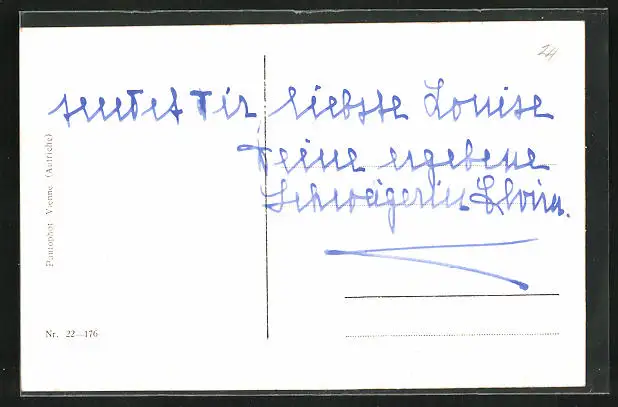 24
sendet Dir, liebste Louise
Deine ergebene
Schwägerin Elvira.
Pantophot Vienne (Autriche)
Nr. 22—176